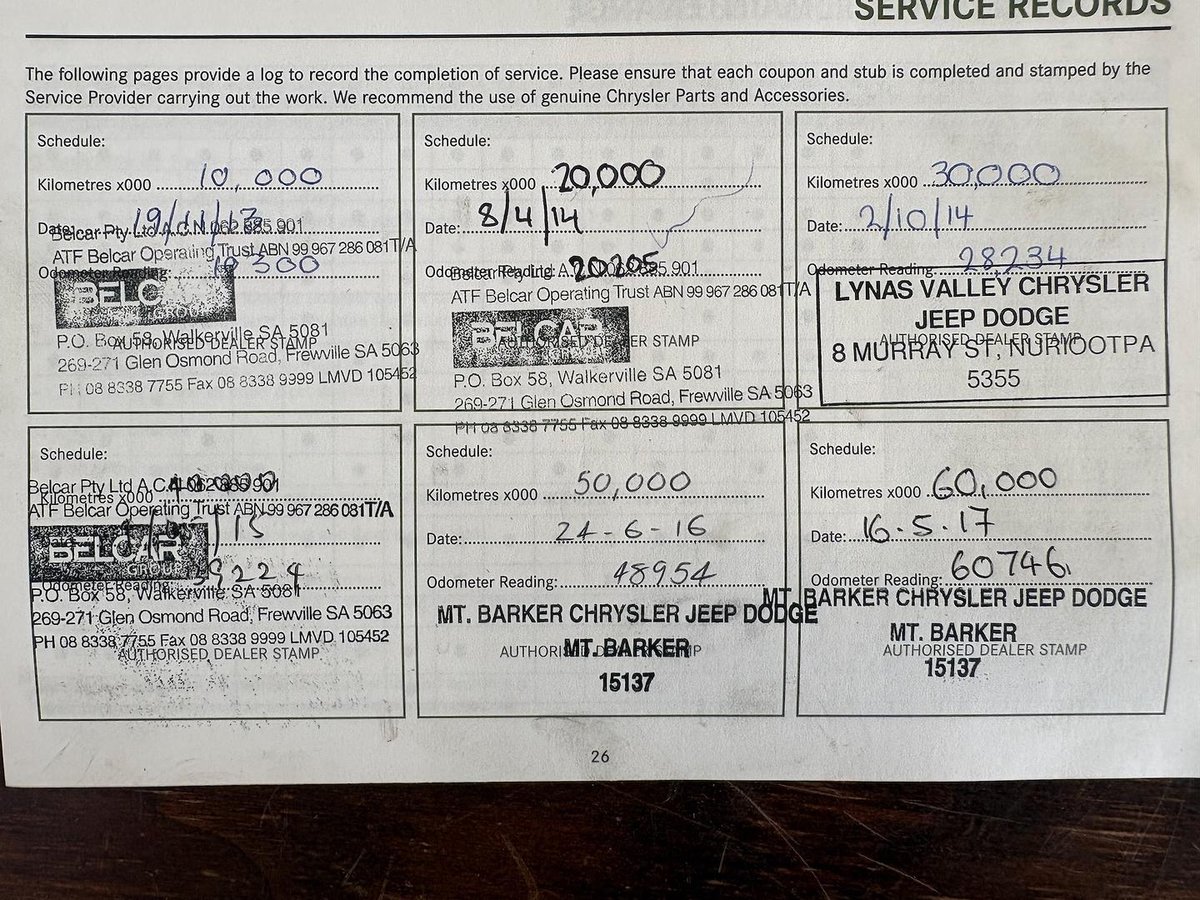 SERVICE RECORDS
The following pages provide a log to record the completion of service. Please ensure that each coupon and stub is completed and stamped by the
Service Provider carrying out the work. We recommend the use of genuine Chrysler Parts and Accessories.
Schedule:
Kilometres x000 10,000
Date: 19/11/13
Belcar Pty Ltd A.C.N 062 885 901
ATF Belcar Operating Trust ABN 99 967 286 081 T/A
Odometer Reading: 300
BELC
GROU
P.O. Box 58, Walkerville SA 5081
AUTHORISED DEALER STAMP
269-271 Glen Osmond Road, Frewville SA 5063
PH 08 8338 7755 Fax 08 8338 9999 LMVD 105452
Schedule:
Kilometres x000 20,000
Date: 8/4/14
Odometer Reading: 20205
901
ATF Belcar Operating Trust ABN 99 967 286 081 T/A
BELCAR
AUTHORISED DEALER STAMP
P.O. Box 58, Walkerville SA 5081
269-271 Glen Osmond Road, Frewville SA 5063
PH 08 8338 7755 Fax 08 8338 9999 LMVD 105452
Schedule:
Kilometres x000 30,000
Date: 2/10/14
Odometer Reading: 28234
LYNAS VALLEY CHRYSLER
JEEP DODGE
AUTHORISED DEALER STAMP
8 MURRAY ST, NURIOOTPA
5355
Schedule:
Belcar Pty Ltd A.C.N 062 885 901
Kilometres x000 40,000
ATF Belcar Operating Trust ABN 99 967 286 081 T/A
/15
BELCAR
GROUP
Odometer Reading: 39224
P.O. Box 58, Walkerville SA 5081
269-271 Glen Osmond Road, Frewville SA 5063
PH 08 8338 7755 Fax 08 8338 9999 LMVD 105452
AUTHORISED DEALER STAMP
Schedule:
Kilometres x000 50,000
Date: 24-6-16
Odometer Reading: 48954
MT. BARKER CHRYSLER JEEP DODGE
MT. BARKER
AUTHORISED DEALER STAMP
15137
Schedule:
Kilometres x000 60,000
Date: 16.5.17
Odometer Reading: 60746
MT. BARKER CHRYSLER JEEP DODGE
MT. BARKER
AUTHORISED DEALER STAMP
15137
26